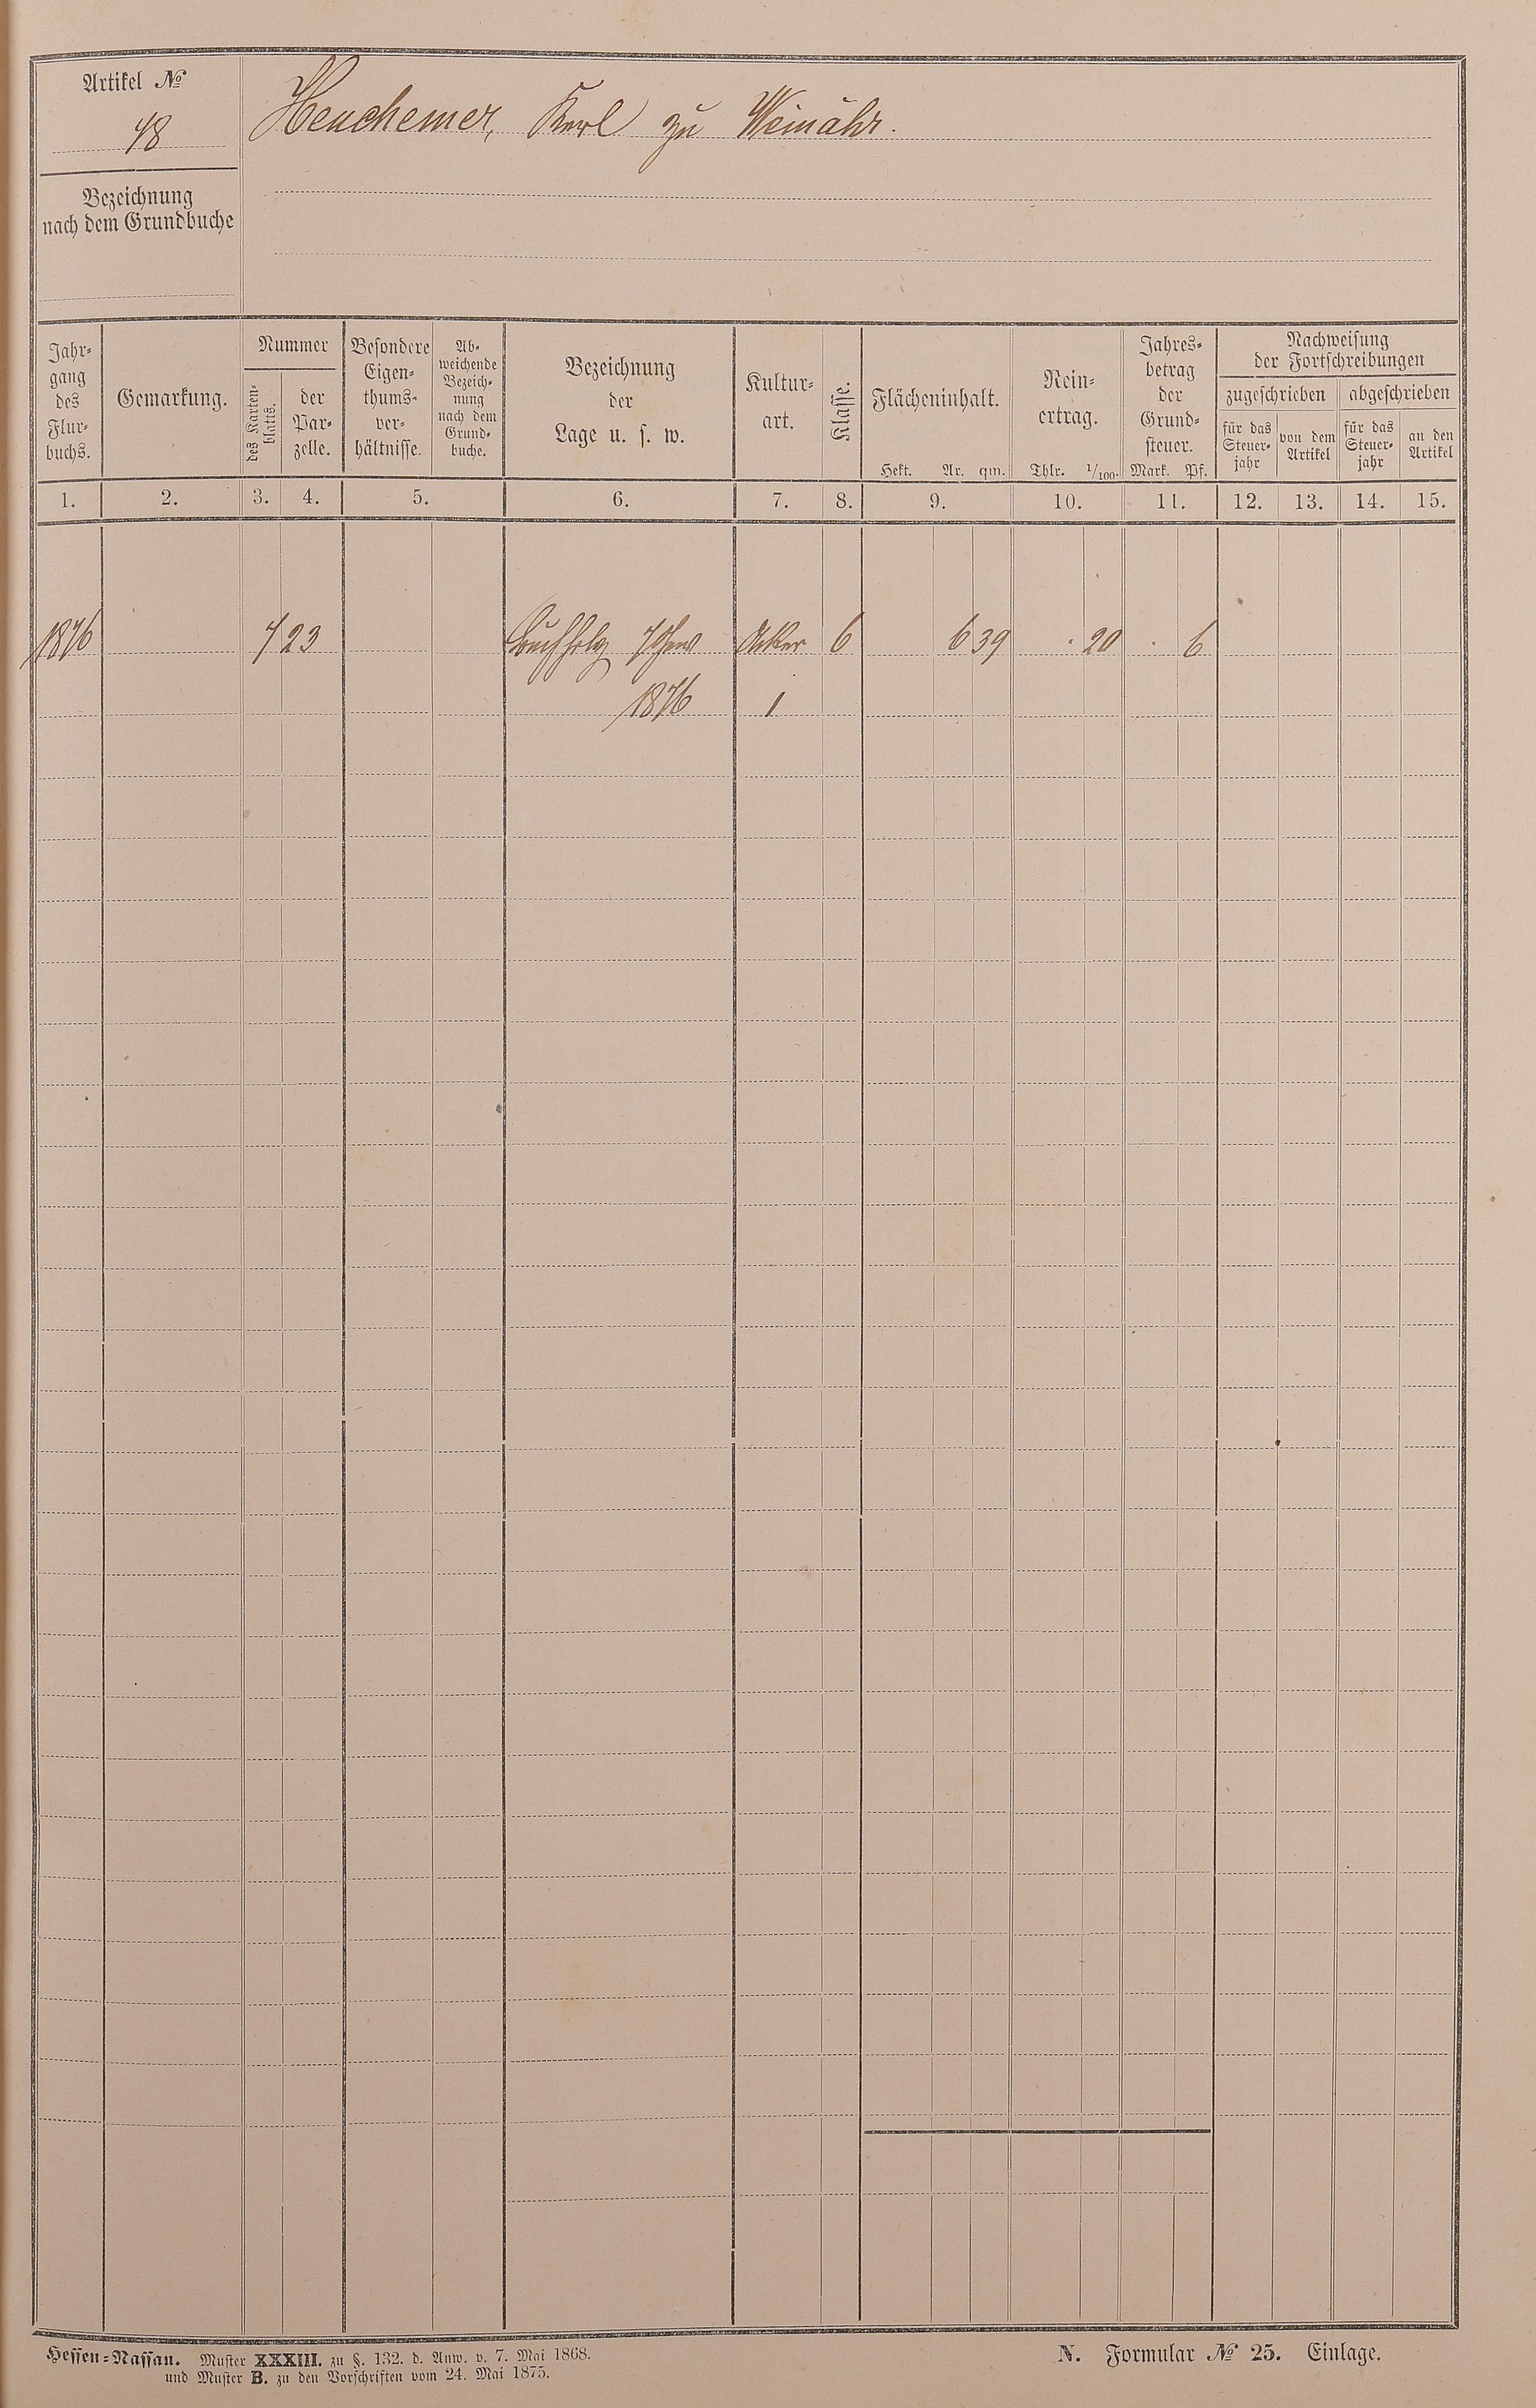 Artikel №
48
Heuchemer, Karl zu Weinähr.
Bezeichnung
nach dem Grundbuche
Jahr-
gang
des
Flur-
buchs.
Gemarkung.
Nummer
des Karten-
blatts.
der
Par-
zelle.
Besondere
Eigen-
thums-
ver-
hältnisse.
Ab-
weichende
Bezeich-
nung
nach dem
Grund-
buche.
Bezeichnung
der
Lage u. s. w.
Kultur-
art.
Klasse.
Flächeninhalt.
Hekt. Ar. qm.
Rein-
ertrag.
Thlr. 1/100.
Jahres-
betrag
der
Grund-
steuer.
Mark. Pf.
Nachweisung
der Fortschreibungen
zugeschrieben abgeschrieben
für das
Steuer-
jahr
von dem
Artikel
für das
Steuer-
jahr
an den
Artikel
1. 2. 3. 4. 5. 6. 7. 8. 9. 10. 11. 12. 13. 14. 15.
1876 7 23 Buchholz Acker 6 6 39 . 20 . 6
1876 1
Hessen-Nassau. Muster XXXIII. zu §. 132. d. Anw. v. 7. Mai 1868.
und Muster B. zu den Vorschriften vom 24. Mai 1875.
N. Formular № 25. Einlage.